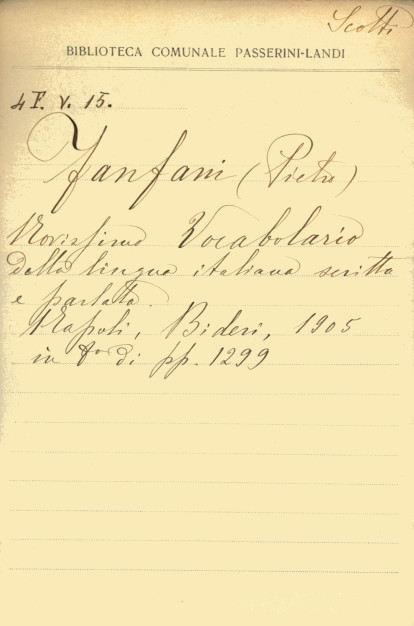 Scotti
BIBLIOTECA COMUNALE PASSERINI-LANDI
4 F. V. 15.
Fanfani (Pietro)
Novissimo Vocabolario
della lingua italiana scritta
e parlata.
Napoli, Bideri, 1905
in 8º di pp. 1299